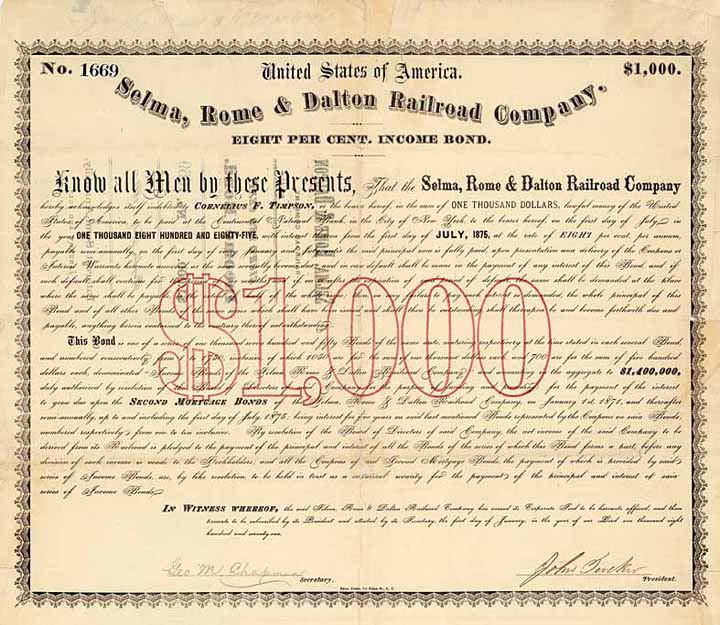 No. 1669
United States of America.
$1,000.
Selma, Rome & Dalton Railroad Company.
EIGHT PER CENT. INCOME BOND.
Know all Men by these Presents, That the Selma, Rome & Dalton Railroad Company
hereby acknowledges itself indebted to CORNELIUS F. TIMPSON, the bearer hereof, in the sum of ONE THOUSAND DOLLARS, lawful money of the United
States of America, to be paid at the Continental National Bank, in the City of New York to the bearer hereof, on the first day of July, in
the year ONE THOUSAND EIGHT HUNDRED AND EIGHTY-FIVE, with interest thereon from the first day of JULY, 1875, at the rate of EIGHT per cent. per annum,
payable semi-annually, on the first day of and until the said principal sum is fully paid, upon presentation and delivery of the Coupons or
Interest Warrants hereunto annexed, as the same severally become due, and in case default shall be made in the payment of any interest of this Bond, and if
such default shall continue for after of default, the same shall be demanded at the place
where the same shall be payable, of the whole sum, then thereby pay interest so demanded, the whole principal of this
Bond and of all other Bonds which shall have been issued and shall then be outstanding shall thereupon be and become forthwith due and
payable, anything herein contained to the contrary thereof notwithstanding.
This Bond is one of a series of one thousand seven hundred and fifty Bonds of the same date, maturing respectively at the time stated in each several Bond,
and numbered consecutively of which 1050 are for the sum of one thousand dollars each, and 700 are for the sum of five hundred
dollars each, denominated Income Bonds of the Selma, Rome & Dalton Railroad Company, and amounting in the aggregate to $1,400,000,
duly authorized by resolution of the Board of Directors of said Company, for the purpose of for the payment of the interest
to grow due upon the SECOND MORTGAGE BONDS of the Selma, Rome & Dalton Railroad Company, on January 1st, 1871, and thereafter
semi-annually, up to and including the first day of July 1875, being interest for five years on said last mentioned Bonds represented by the Coupons on said Bonds,
numbered respectively from one to ten inclusive. By resolution of the Board of Directors of said Company, the net income of the said Company to be
derived from its Railroad is pledged to the payment of the principal and interest of all the Bonds of the series of which this Bond forms a part, before any
division of such income is made to the Stockholders, and all the Coupons of said Second Mortgage Bonds, the payment of which is provided by said
series of Income Bonds, are, by like resolution, to be held in trust as a collateral security for the payment of the principal and interest of said
series of Income Bonds.
$1,000
IN WITNESS WHEREOF, the said Selma, Rome & Dalton Railroad Company has caused its Corporate Seal to be hereunto affixed, and these
presents to be subscribed by its President and attested by its Secretary, the first day of January, in the year of our Lord one thousand eight
hundred and seventy-one.
Geo M. Chapman
Secretary.
John Tucker
President.